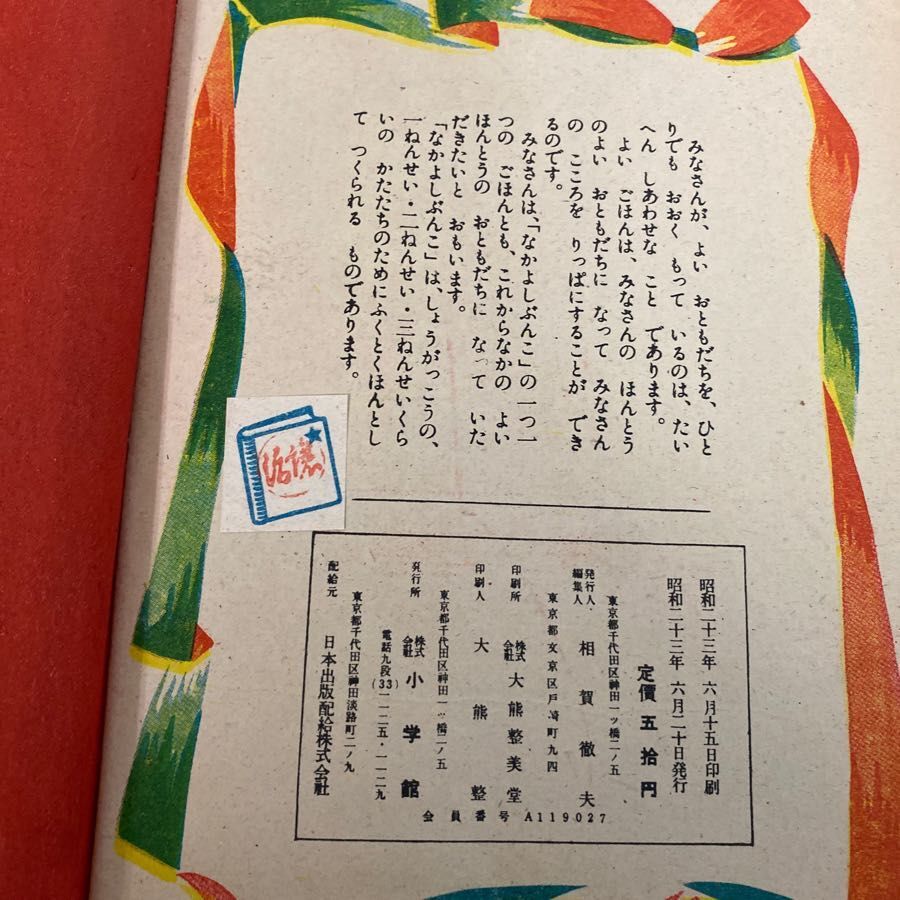 みなさんが、よい おともだちを、ひと
りでも おおく もって いるのは、たい
へん しあわせな こと であります。
よい ごほんは、みなさんの ほんとう
のよい おともだちに なって みなさん
の こころを りっぱにすることが でき
るのです。
みなさんは、「なかよしぶんこ」の一つ一
つの ごほんとも、これからなかの よい
ほんとうの おともだちに なって いた
だきたいと おもいます。
「なかよしぶんこ」は、しょうがっこうの、
一ねんせい・二ねんせい・三ねんせいくら
いの かたたちのためにふくとくほんとし
て つくられる ものであります。
昭和二十三年 六月十五日印刷
昭和二十三年 六月二十日発行
定價五拾円
東京都千代田区神田一ッ橋二ノ五
発行人、編集人 相賀徹夫
東京都文京区戸崎町九四
印刷所 株式会社 大熊整美堂
印刷人 大熊整
東京都千代田区神田一ッ橋二ノ五
発行所 株式会社 小学館
電話九段(33)一一二五・一一二九
東京都千代田区神田淡路町二ノ九
配給元 日本出版配給株式会社
会員番号 A119027